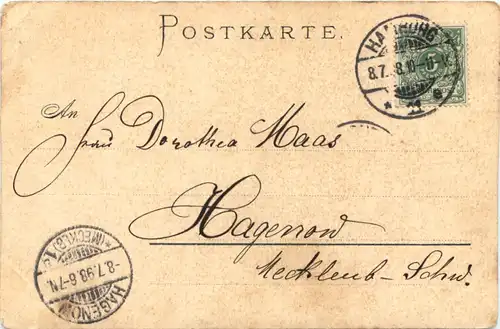 POSTKARTE.
HAMBURG
8.7.
* 11 e
An
Frau Dorothea Maas
Hagenow
Mecklenb-Schw.
*(MECKLB)1*
-8.7.98.6-7N.
HAGENOW